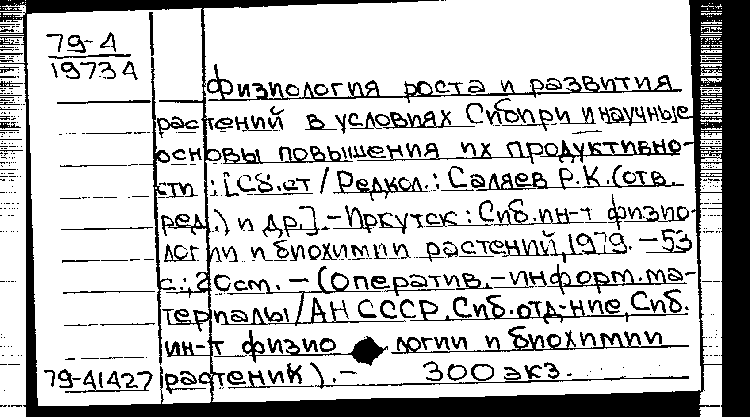 79-4
19734
Физиология роста и развития
растений в условиях Сибири и научные
основы повышения их продуктивно-
сти : [Сб.ст / Редкол.: Саляев Р.К. (отв.
ред.) и др.]. - Иркутск : Сиб. ин-т физио-
логии и биохимии растений, 1979. - 53
с.; 20 см. - (Оператив.-информ. ма-
териалы / АН СССР, Сиб. отд-ние, Сиб.
ин-т физио логии и биохимии
79-41427 растений). - 300 экз.